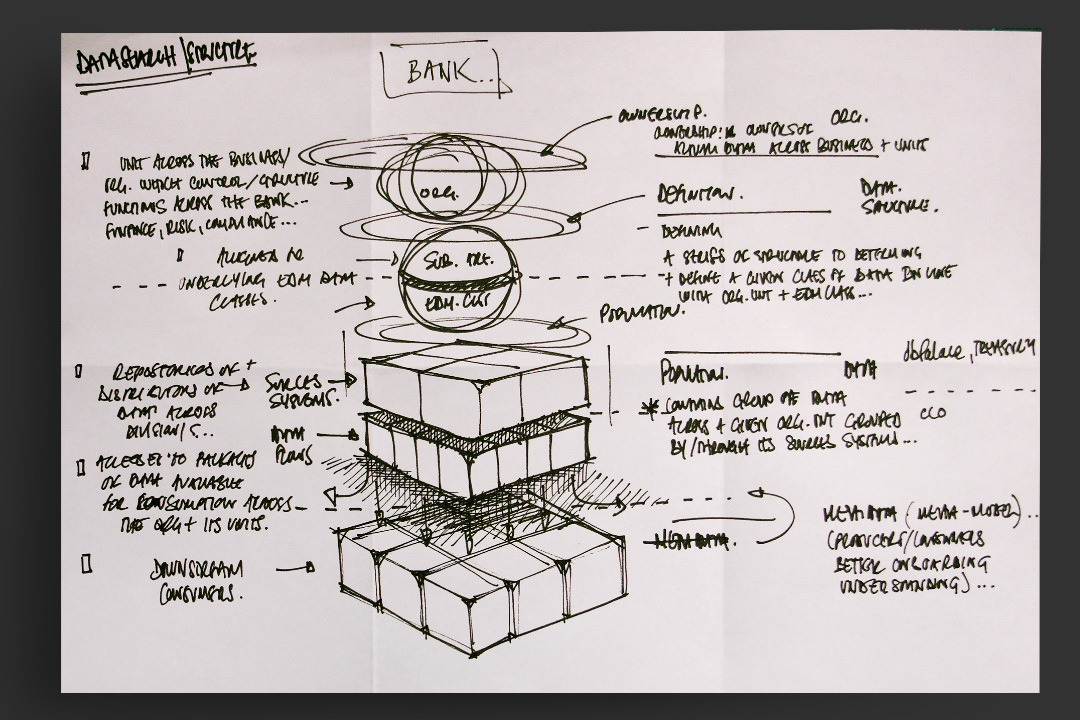 DATA SEARCH / STRUCTURE
BANK...
OWNERSHIP.
ORG.
ACROSS BUSINESS + UNIT
UNIT ACROSS THE BUSINESS/
ORG. WHICH CONTROL/STRUCTURE
FUNCTIONS ACROSS THE BANK...
FINANCE, RISK, COMPLIANCE...
ORG.
DEFINITION.
DATA.
STRUCTURE.
ALIGNED TO
UNDERLYING EDM DATA
CLASSES.
SUB.
EDM.
A SERIES OF STRUCTURE TO DETERMINE
+ DEFINE A GIVEN CLASS OF DATA IN LINE
WITH ORG. UNIT + EDM CLASS...
POPULATION.
REPOSITORIES OF +
DISTRIBUTIONS OF
DATA ACROSS
DIVISION/S...
SOURCES
SYSTEMS.
DATA
FLOWS
POPULATION.
DATA
, TREASURY
* CONTAINS GROUP OF DATA
ACROSS A GIVEN ORG. UNIT GROUPED
BY/THROUGH ITS SOURCES SYSTEMS...
CCO
ACCESSES TO PACKAGES
OF DATA AVAILABLE
FOR CONSUMPTION ACROSS
THE ORG + ITS UNITS.
METADATA.
META DATA (META-MODEL)...
(PRODUCERS/CONSUMERS
BETTER ONBOARDING
UNDERSTANDING)...
DOWNSTREAM
CONSUMERS.